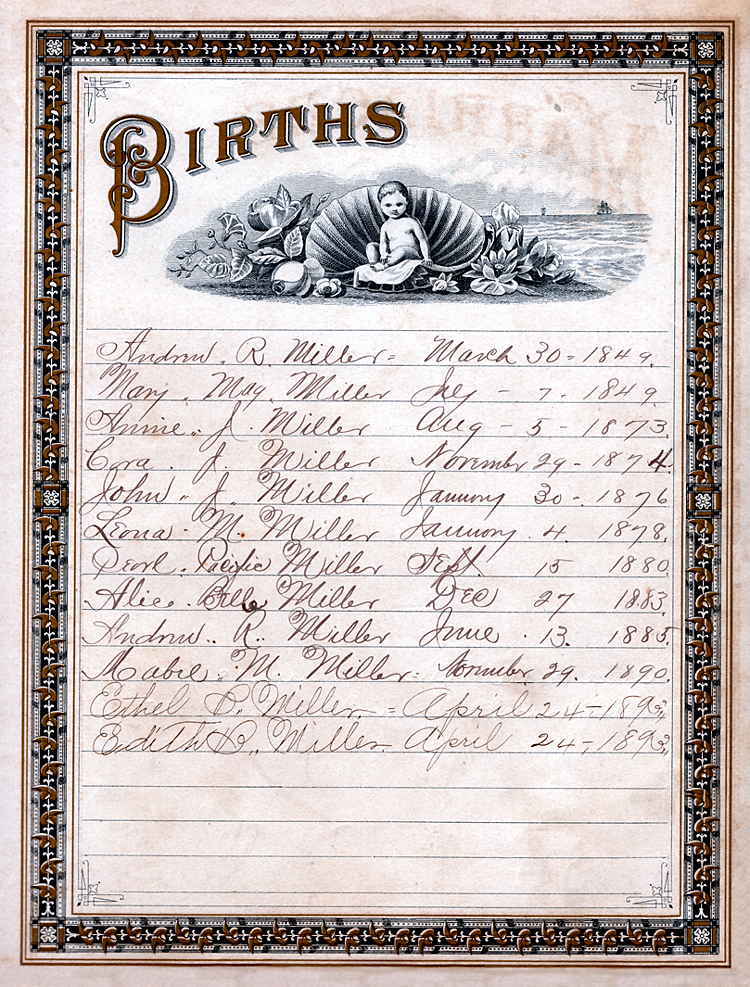 BIRTHS
Andrew. R. Miller = March 30 = 1849.
Mary. Mag. Miller July - 7. 1849.
Annie. J. Miller Aug - 5 - 1873
Cora. J. Miller November 29 - 1874.
John. J. Miller January 30 - 1876
Leona - M. Miller January. 4. 1878.
Pearl. Pacific Miller Sept. 15 1880
Alice. Belle Miller DEC 27 1883.
Andrew. R. Miller June. 13. 1885
Mable. M. Miller: November 29. 1890.
Ethel Miller = April 24 -
Edith Miller April 24 -